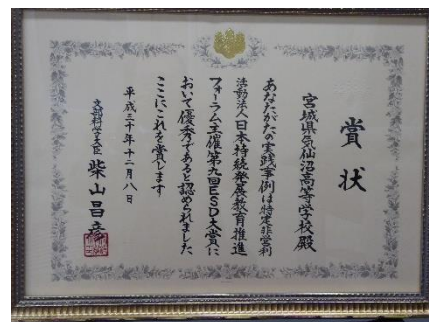 賞状
宮城県気仙沼高等学校殿
あなたがたの実践事例は特定非営利
活動法人日本持続発展教育推進
フォーラム主催第九回ESD大賞に
おいて優秀であると認められました
ここにこれを賞します
平成三十年十二月八日
文部科学大臣 柴山昌彦